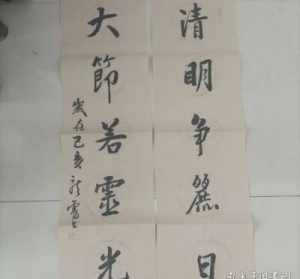 清明争麗日
大節若靈光
歲在己亥